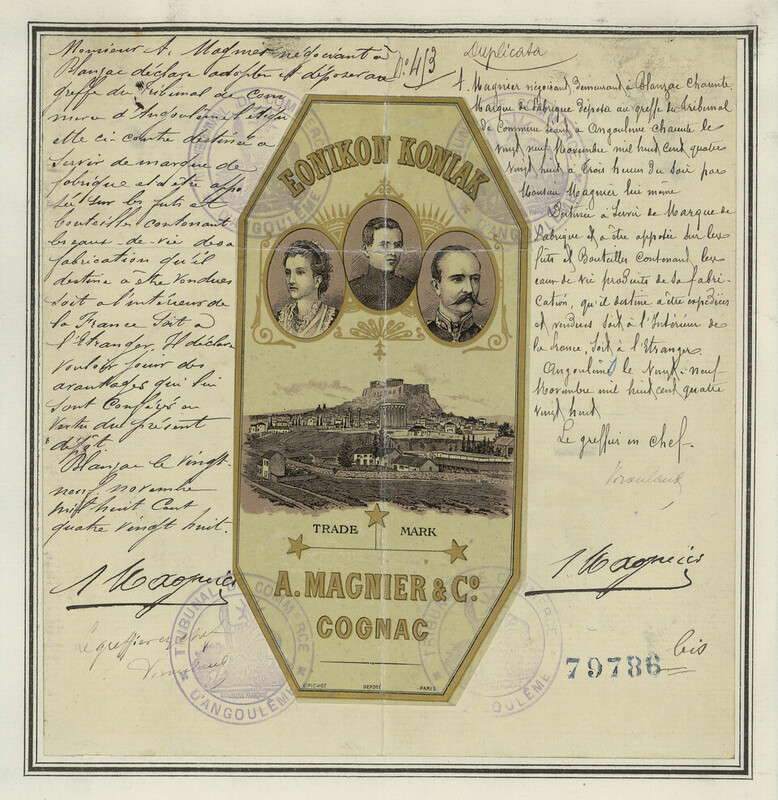 Monsieur A. Magnier négociant à
Blanzac déclare adopter et déposer au
greffe du Tribunal de Com
merce d'Angoulême l'étiqu
ette ci contre destinée à
servir de marque de
fabrique et d'être appo
sée sur les futs et
bouteilles contenant
les eaux-de-vie de sa
fabrication qu'il
destine à être vendues
soit à l'intérieur de
la France soit à
l'Etranger. Il déclare
vouloir jouir des
avantages qui lui
sont conférés en
vertu du présent
dépôt
Blanzac le vingt-
neuf novembre
mil huit cent
quatre vingt huit.
A Magnier
Le greffier en chef
No 413
Duplicata
A. Magnier négociant, demeurant à Blanzac Charente.
Marque de Fabrique déposée au greffe du Tribunal
de Commerce séant à Angoulême Charente le
Vingt neuf Novembre mil huit cent quatre
Vingt huit à trois heures du soir par
Monsieur Magnier lui même
Destinée à Servir de Marque de
Fabrique et à être apposée sur les
fûts et Bouteilles Contenant les
eaux de Vie produits de sa fabri-
cation, qu'il destine à être expédiées
et vendues soit à l'Intérieur de
la France, soit à l'Etranger.
Angoulême le Vingt-neuf
Novembre mil huit cent quatre
Vingt huit
Le greffier en chef.
A Magnier
EONIKON KONIAK
TRADE MARK
A. MAGNIER & Co.
COGNAC
DEPOSÉ
PARIS
TRIBUNAL DE COMMERCE
D'ANGOULÊME
79786 bis